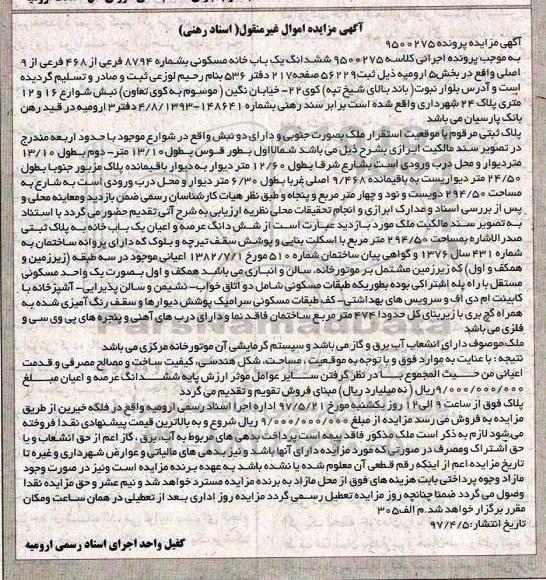 آگهی مزایده اموال غیرمنقول( اسناد رهنی)
آگهی مزایده پرونده ۹۵۰۰۲۷۵
به موجب پرونده اجرائی کلاسه ۹۵۰۰۲۷۵ ششدانگ یک باب خانه مسکونی بشماره ۸۷۹۴ فرعی از ۴۶۸ فرعی از ۹
اصلی واقع در بخش۵ ارومیه ذیل ثبت۵۶۲۲۹ صفحه۲۱۷ دفتر ۵۳۶ بنام رحیم لوزعی ثبت و صادر و تسلیم گردیده
است و آدرس بلوار نبوت( باند بالای شیخ تپه) کوی۲۲- خیابان نگین ( موسوم به کوی تعاون) نبش شوارع ۱۶ و ۱۲
متری پلاک ۲۴ شهرداری واقع شده است برابر سند رهنی بشماره ۱۴۸۶۴۱-۴/۸/۱۳۹۳ دفتر۳ ارومیه در قید رهن
بانک پارسیان می باشد
پلاک ثبتی مرقوم با موقعیت استقرار ملک بصورت جنوبی و دارای دو نبش واقع در شوارع موجود با حدود اربعه مندرج
در تصویر سند مالکیت ابرازی بشرح ذیل می باشد شمالا اول بطور قوس بطول ۱۳/۱۰ متر- دوم بطول ۱۳/۱۰
متر دیوار و محل درب ورودی است بشارع شرقا بطول ۱۲/۶۰ متر دیوار به دیوار باقیمانده پلاک مزبور جنوبا بطول
۲۴/۵۰ متر دیواریست به باقیمانده ۹/۴۶۸ اصلی غربا بطول ۶/۳۰ متر دیوار و محل درب ورودی است به شارع به
مساحت ۲۹۴/۵۰ دویست و نود و چهار متر مربع و پنجاه و طبق نظر هیات کارشناسان رسمی ضمن بازدید و معاینه محلی و
پس از بررسی اسناد و مدارک ابرازی و انجام تحقیقات محلی نظریه ارزیابی به شرح آتی تقدیم حضور می گردد با استناد
به تصویر سند مالکیت ملک مورد بازدید عبارت است از شش دانگ عرصه و اعیان یک باب خانه به پلاک ثبتی
صدر الاشاره بمساحت ۲۹۴/۵۰ متر مربع با اسکلت بنایی و پوشش سقف تیرچه و بلوک که دارای پروانه ساختمان به
شماره ۴۳۱ سال ۱۳۷۶ و گواهی پیان ساختمان شماره ۵۱۰ مورخ ۱۳۸۲/۷/۱ اعیانی موجود در سه طبقه (زیرزمین و
همکف و اول) که زیرزمین مشتمل بر موتورخانه، سالن و انباری می باشد همکف و اول بصورت یک واحد مسکونی
مستقل با راه پله اشتراکی بوده بطوریکه طبقات مسکونی شامل دو اتاق خواب- نشیمن و سالن پذیرایی- آشپزخانه با
کابینت ام دی اف و سرویس های بهداشتی- کف طبقات مسکونی سرامیک پوشش دیوارها و سقف رنگ آمیزی شده به
همراه گچ بری با زیربنای کل حدودا ۴۷۴ متر مربع ساختمان فاقد نما و دارای درب های آهنی و پنجره های پی وی سی و
فلزی می باشد
ملک موصوف دارای انشعاب آب برق و گاز می باشد و سیستم گرمایشی آن موتورخانه مرکزی می باشد
نتیجه: با عنایت به موارد فوق و با توجه به موقعیت، مساحت، شکل هندسی، کیفیت ساخت و مصالح مصرفی و قدمت
اعیانی من حیث المجموع با در نظر گرفتن سایر عوامل موثر ارزش پایه ششدانگ عرصه و اعیان مبلغ
۹/۰۰۰/۰۰۰/۰۰۰ریال ( نه میلیارد ریال) مبنای فروش تقویم و تقدیم می گردد
پلاک فوق از ساعت ۹ الی ۱۲ روز یکشنبه مورخ ۹۷/۵/۲۱ اداره اجرا اسناد رسمی ارومیه واقع در فلکه خیرین از طریق
مزایده به فروش می رسد مزایده از مبلغ ۹/۰۰۰/۰۰۰/۰۰۰ ریال شروع و به بالاترین قیمت پیشنهادی نقدا فروخته
می شود لازم به ذکر است ملک مذکور فاقد بیمه است پرداخت بدهی های مربوط به آب، برق، گاز اعم از حق انشعاب و یا
حق اشتراک ومصرف در صورتی که مورد مزایده دارای آنها باشد و نیز بدهی های مالیاتی و عوارض شهرداری و غیره تا
تاریخ مزایده اعم از اینکه رقم قطعی آن معلوم شده یا نشده باشد به عهده برنده مزایده است ونیز در صورت وجود
مازاد وجوه پرداختی بابت هزینه های فوق از محل مازاد به برنده مزایده مسترد خواهد شد و نیم عشر و حق مزایده نقدا
وصول می گردد ضمنا چنانچه روز مزایده تعطیل رسمی گردد مزایده روز اداری بعد از تعطیلی در همان ساعت ومکان
مقرر برگزار خواهد شد.م الف۳۰۵
تاریخ انتشار:۹۷/۴/۵
کفیل واحد اجرای اسناد رسمی ارومیه